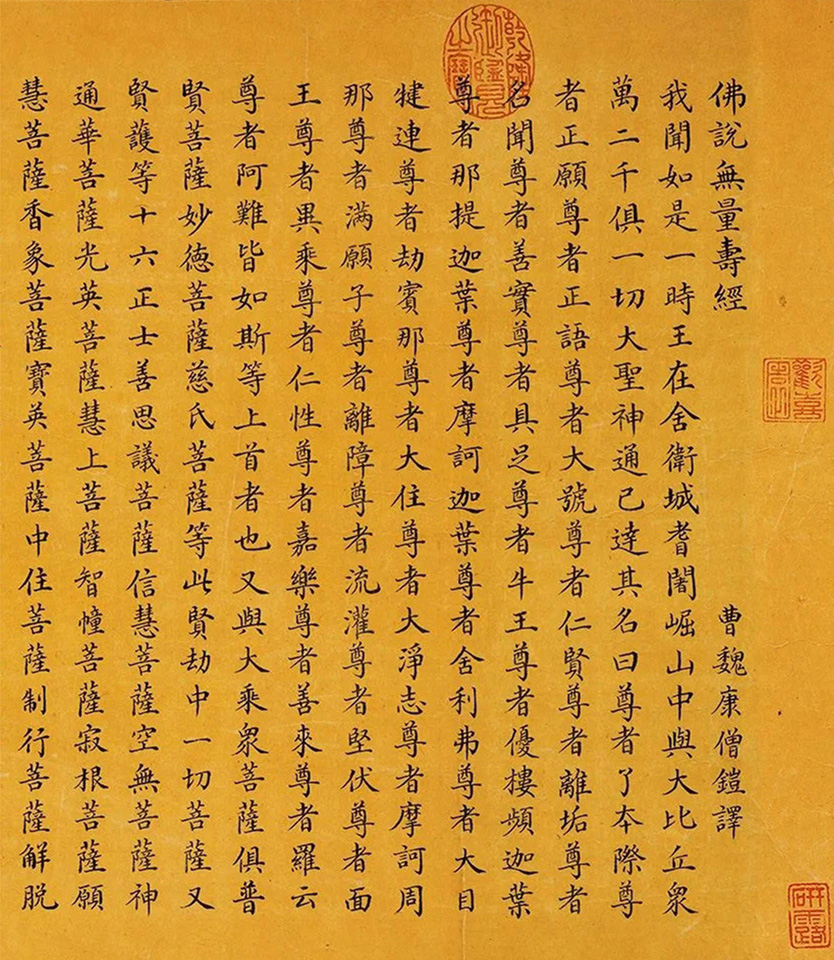 佛說無量壽經 曹魏康僧鎧譯
我聞如是一時王在舍衛城耆闍崛山中與大比丘衆
萬二千俱一切大聖神通已達其名曰尊者了本際尊
者正願尊者正語尊者大號尊者仁賢尊者離垢尊者
名聞尊者善實尊者具足尊者牛王尊者優樓頻迦葉
尊者那提迦葉尊者摩訶迦葉尊者舍利弗尊者大目
犍連尊者劫賓那尊者大住尊者大淨志尊者摩訶周
那尊者满願子尊者離障尊者流灌尊者堅伏尊者面
王尊者異乘尊者仁性尊者嘉樂尊者善來尊者羅云
尊者阿難皆如斯等上首者也又與大乘衆菩薩俱普
賢菩薩妙德菩薩慈氏菩薩等此賢劫中一切菩薩又
賢護等十六正士善思議菩薩信慧菩薩空無菩薩神
通華菩薩光英菩薩慧上菩薩智幢菩薩寂根菩薩願
慧菩薩香象菩薩寶英菩薩中住菩薩制行菩薩解脫
研露